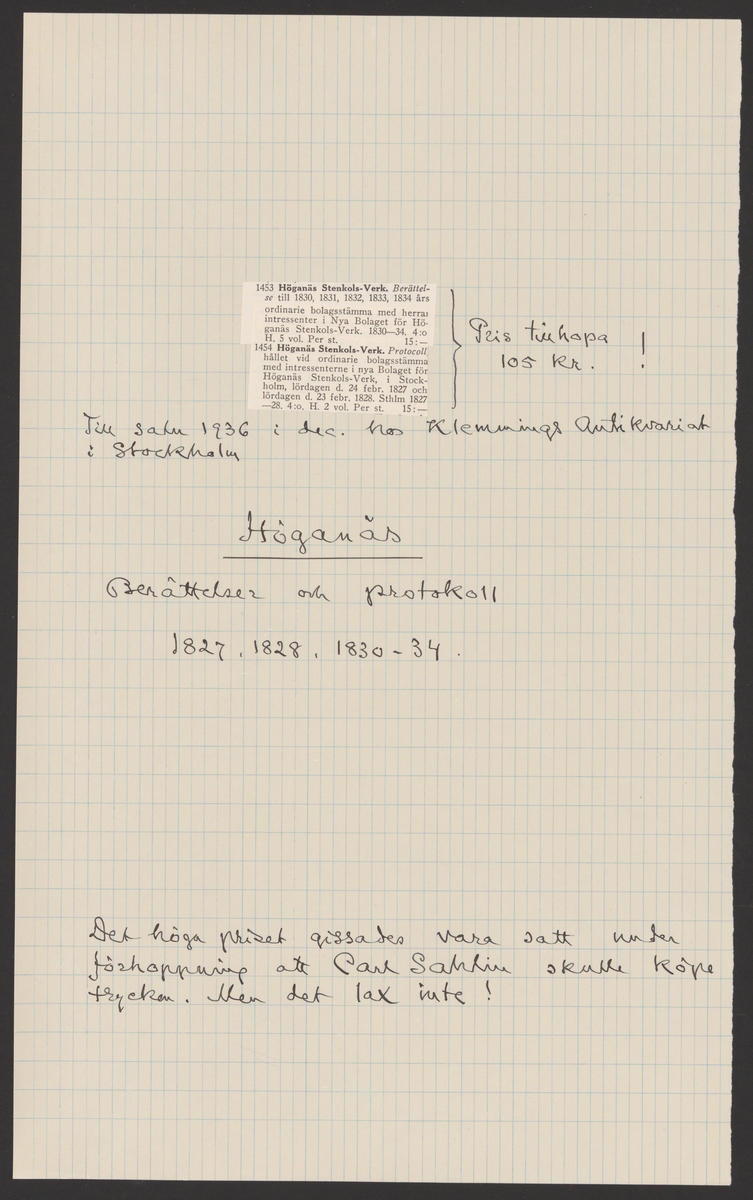 1453 Höganäs Stenkols-Verk. Berättel-
se till 1830, 1831, 1832, 1833, 1834 års
ordinarie bolagsstämma med herrar
intressenter i Nya Bolaget för Hö-
ganäs Stenkols-Verk. 1830—34. 4:o
H. 5 vol. Per st. 15:—
1454 Höganäs Stenkols-Verk. Protocoll
hållet vid ordinarie bolagsstämma
med intressenterne i nya Bolaget för
Höganäs Stenkols-Verk, i Stock-
holm, lördagen d. 24 febr. 1827 och
lördagen d. 23 febr. 1828. Sthlm 1827
—28. 4:o. H. 2 vol. Per st. 15:—
Pris tillhopa
105 Kr. !
Till salu 1936 i dec. hos Klemmings Antikvariat
i Stockholm
Höganäs
Berättelser och protokoll
1827, 1828, 1830-34.
Det höga priset gissades vara satt under
förhoppning att Carl Sahlin skulle köpa
trycken. Men det lax inte!